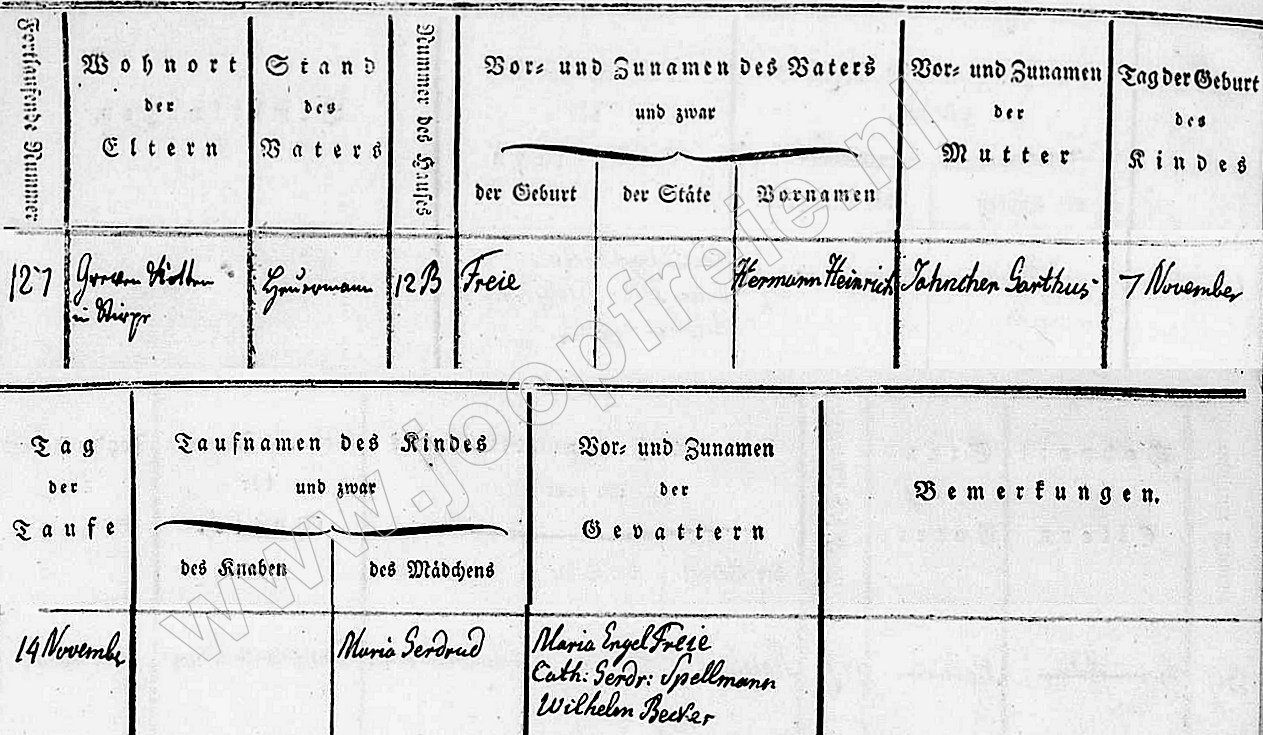 Fortlaufende Nummer
Wohnort
der
Eltern
Stand
des
Vaters
Nummer des Hauses
Vor- und Zunamen des Vaters
und zwar
der Geburt
der Stäte
Vornamen
Vor- und Zunamen
der
Mutter
Tag der Geburt
des
Kindes
127
in
Heuermann
12 B
Freie
Hermann Heinrich
Garthus
7 November
Tag
der
Taufe
Taufnamen des Kindes
und zwar
des Knaben
des Mädchens
Vor- und Zunamen
der
Gevattern
Bemerkungen.
14 November
Maria Gerdrud
Maria Engel Freie
Cath: Gerdr: Spellmann
Wilhelm Becker
www.joopfreie.nl